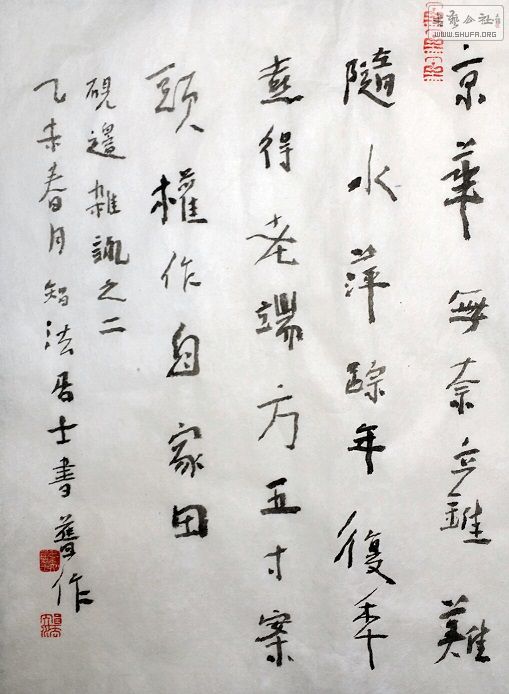 京華無奈立錐難
隨水萍蹤年復年
燕得老端方五寸案
頭權作自家田
硯邊雜諷之二
乙未春月智法居士書舊作
書法公社
WWW.SHUFA.ORG